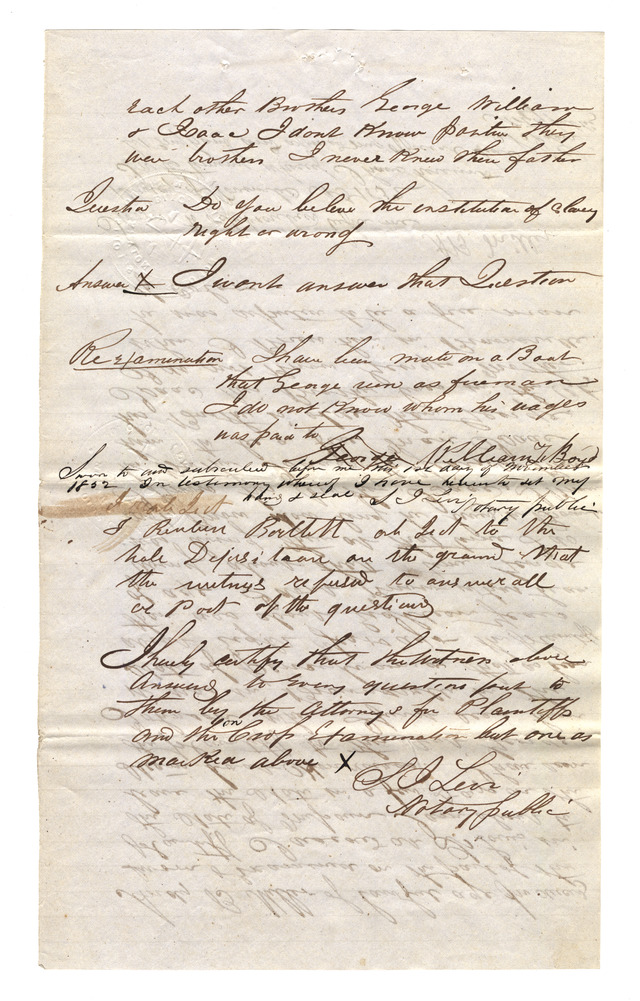 each other Brothers George William
& Isaac I dont Know positive they
were brothers I never Knew their father
Question Do you believe the institution of slavery
right or wrong
Answer X I wont answer that Question
Re Examination I have been mate on a Boat
that George run as fireman
I do not Know whom his wages
was paid to
George William T Boyd
Sworn to and subscribed before me this day of November
1852 In testimony whereof I have hereunto set my
hand & seal S J Levi Notary public
I Reuben Bartlett ob Ject to the
hole Deposition on the ground that
the witness refused to answer all
or Part of the question
I hereby certify that the Witness above
Answered to every question put to
them by the Attorneys for Plaintiffs
and the on Cross Examination but one as
marked above X
S J Levi
Notary public